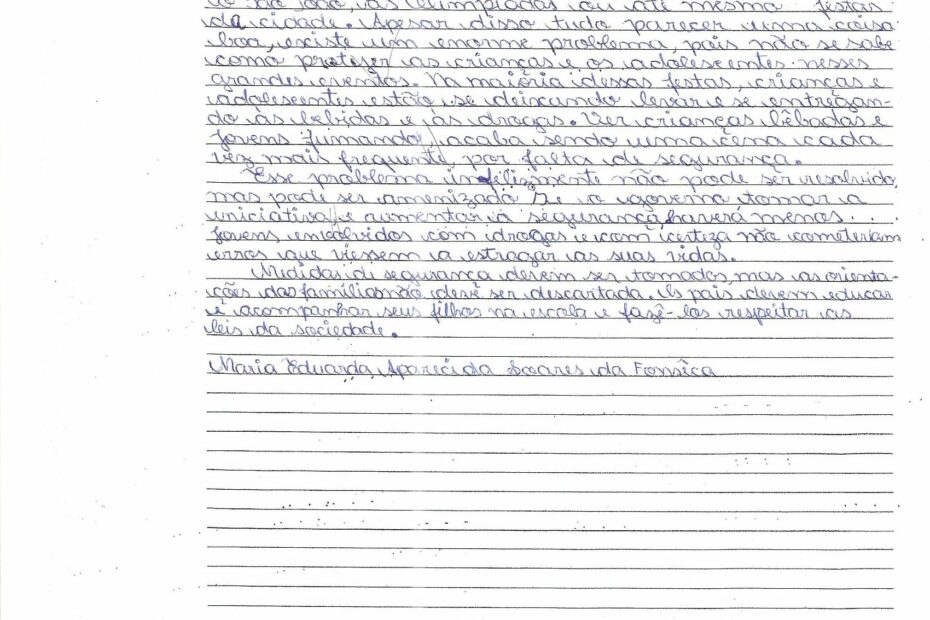 co São João, as Olimpíadas ou até mesmo festas
da cidade. Apesar disso tudo parecer uma coisa
boa, existe um enorme problema, pois não se sabe
como proteger as crianças e os adolescentes nesses
grandes eventos. Na maioria dessas festas, crianças e
adolescentes estão se deixando levar e se entregan-
do às bebidas e às drogas. Ver crianças bêbadas e
jovens fumando, acaba sendo uma cena cada
vez mais frequente, por falta de segurança.
Esse problema infelizmente não pode ser resolvido,
mas pode ser amenizado. Se o governo tomar a
iniciativa e aumentar a segurança, haverá menos
jovens envolvidos com drogas e com certeza não cometeriam
erros que viessem a estragar as suas vidas.
Medidas de segurança devem ser tomadas, mas as orienta-
ções das famílias não deve ser descartada. Os pais devem educar
e acompanhar seus filhos na escola e fazê-los respeitar as
leis da sociedade.
Maria Eduarda Aparecida Soares da Fonsêca